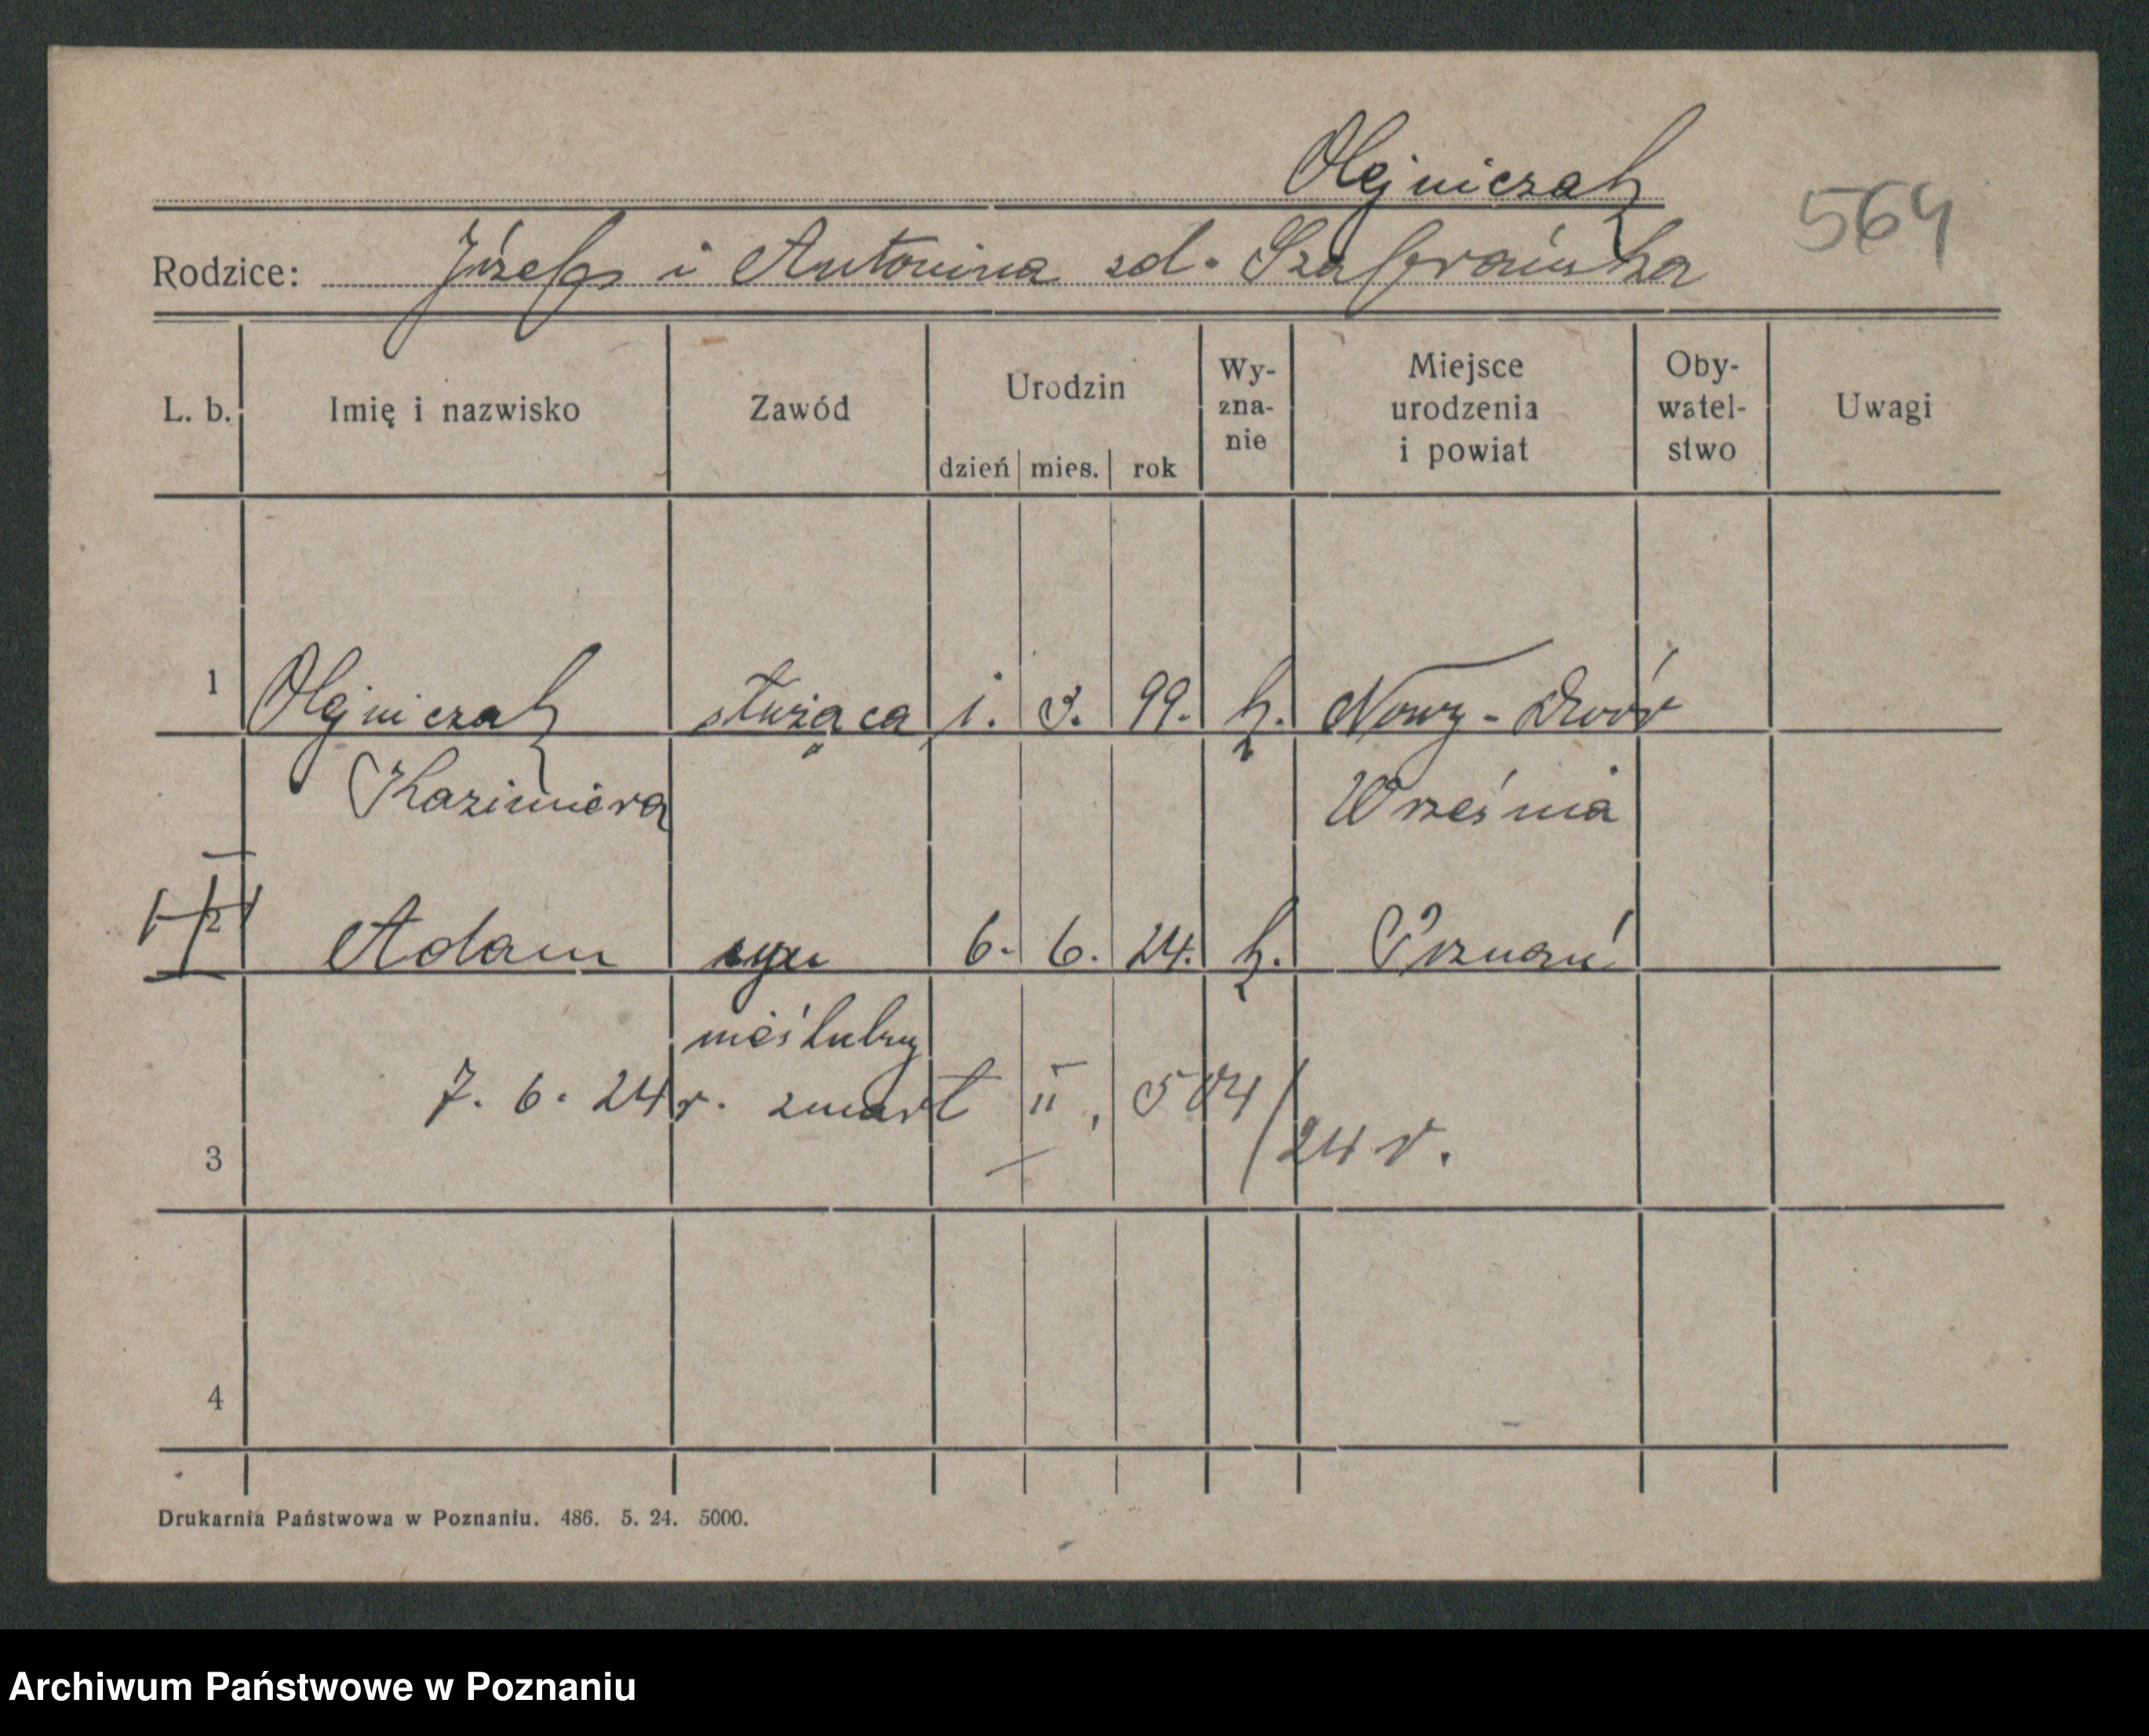 Olejniczak
564
Rodzice: Józefa i Antonina zd. Szafrańska
L. b. Imię i nazwisko Zawód Urodzin dzień mies. rok Wy-zna-nie Miejsce urodzenia i powiat Oby-watel-stwo Uwagi
1 Olejniczak służąca 1. 3. 99. k. Nowy-Dwór
Kazimiera Września
2 Adam syn 6. 6. 24. k. Poznań
nieślubny
7. 6. 24 r. zmarł II, 504/24 r.
3
4
Drukarnia Państwowa w Poznaniu. 486. 5. 24. 5000.
Archiwum Państwowe w Poznaniu